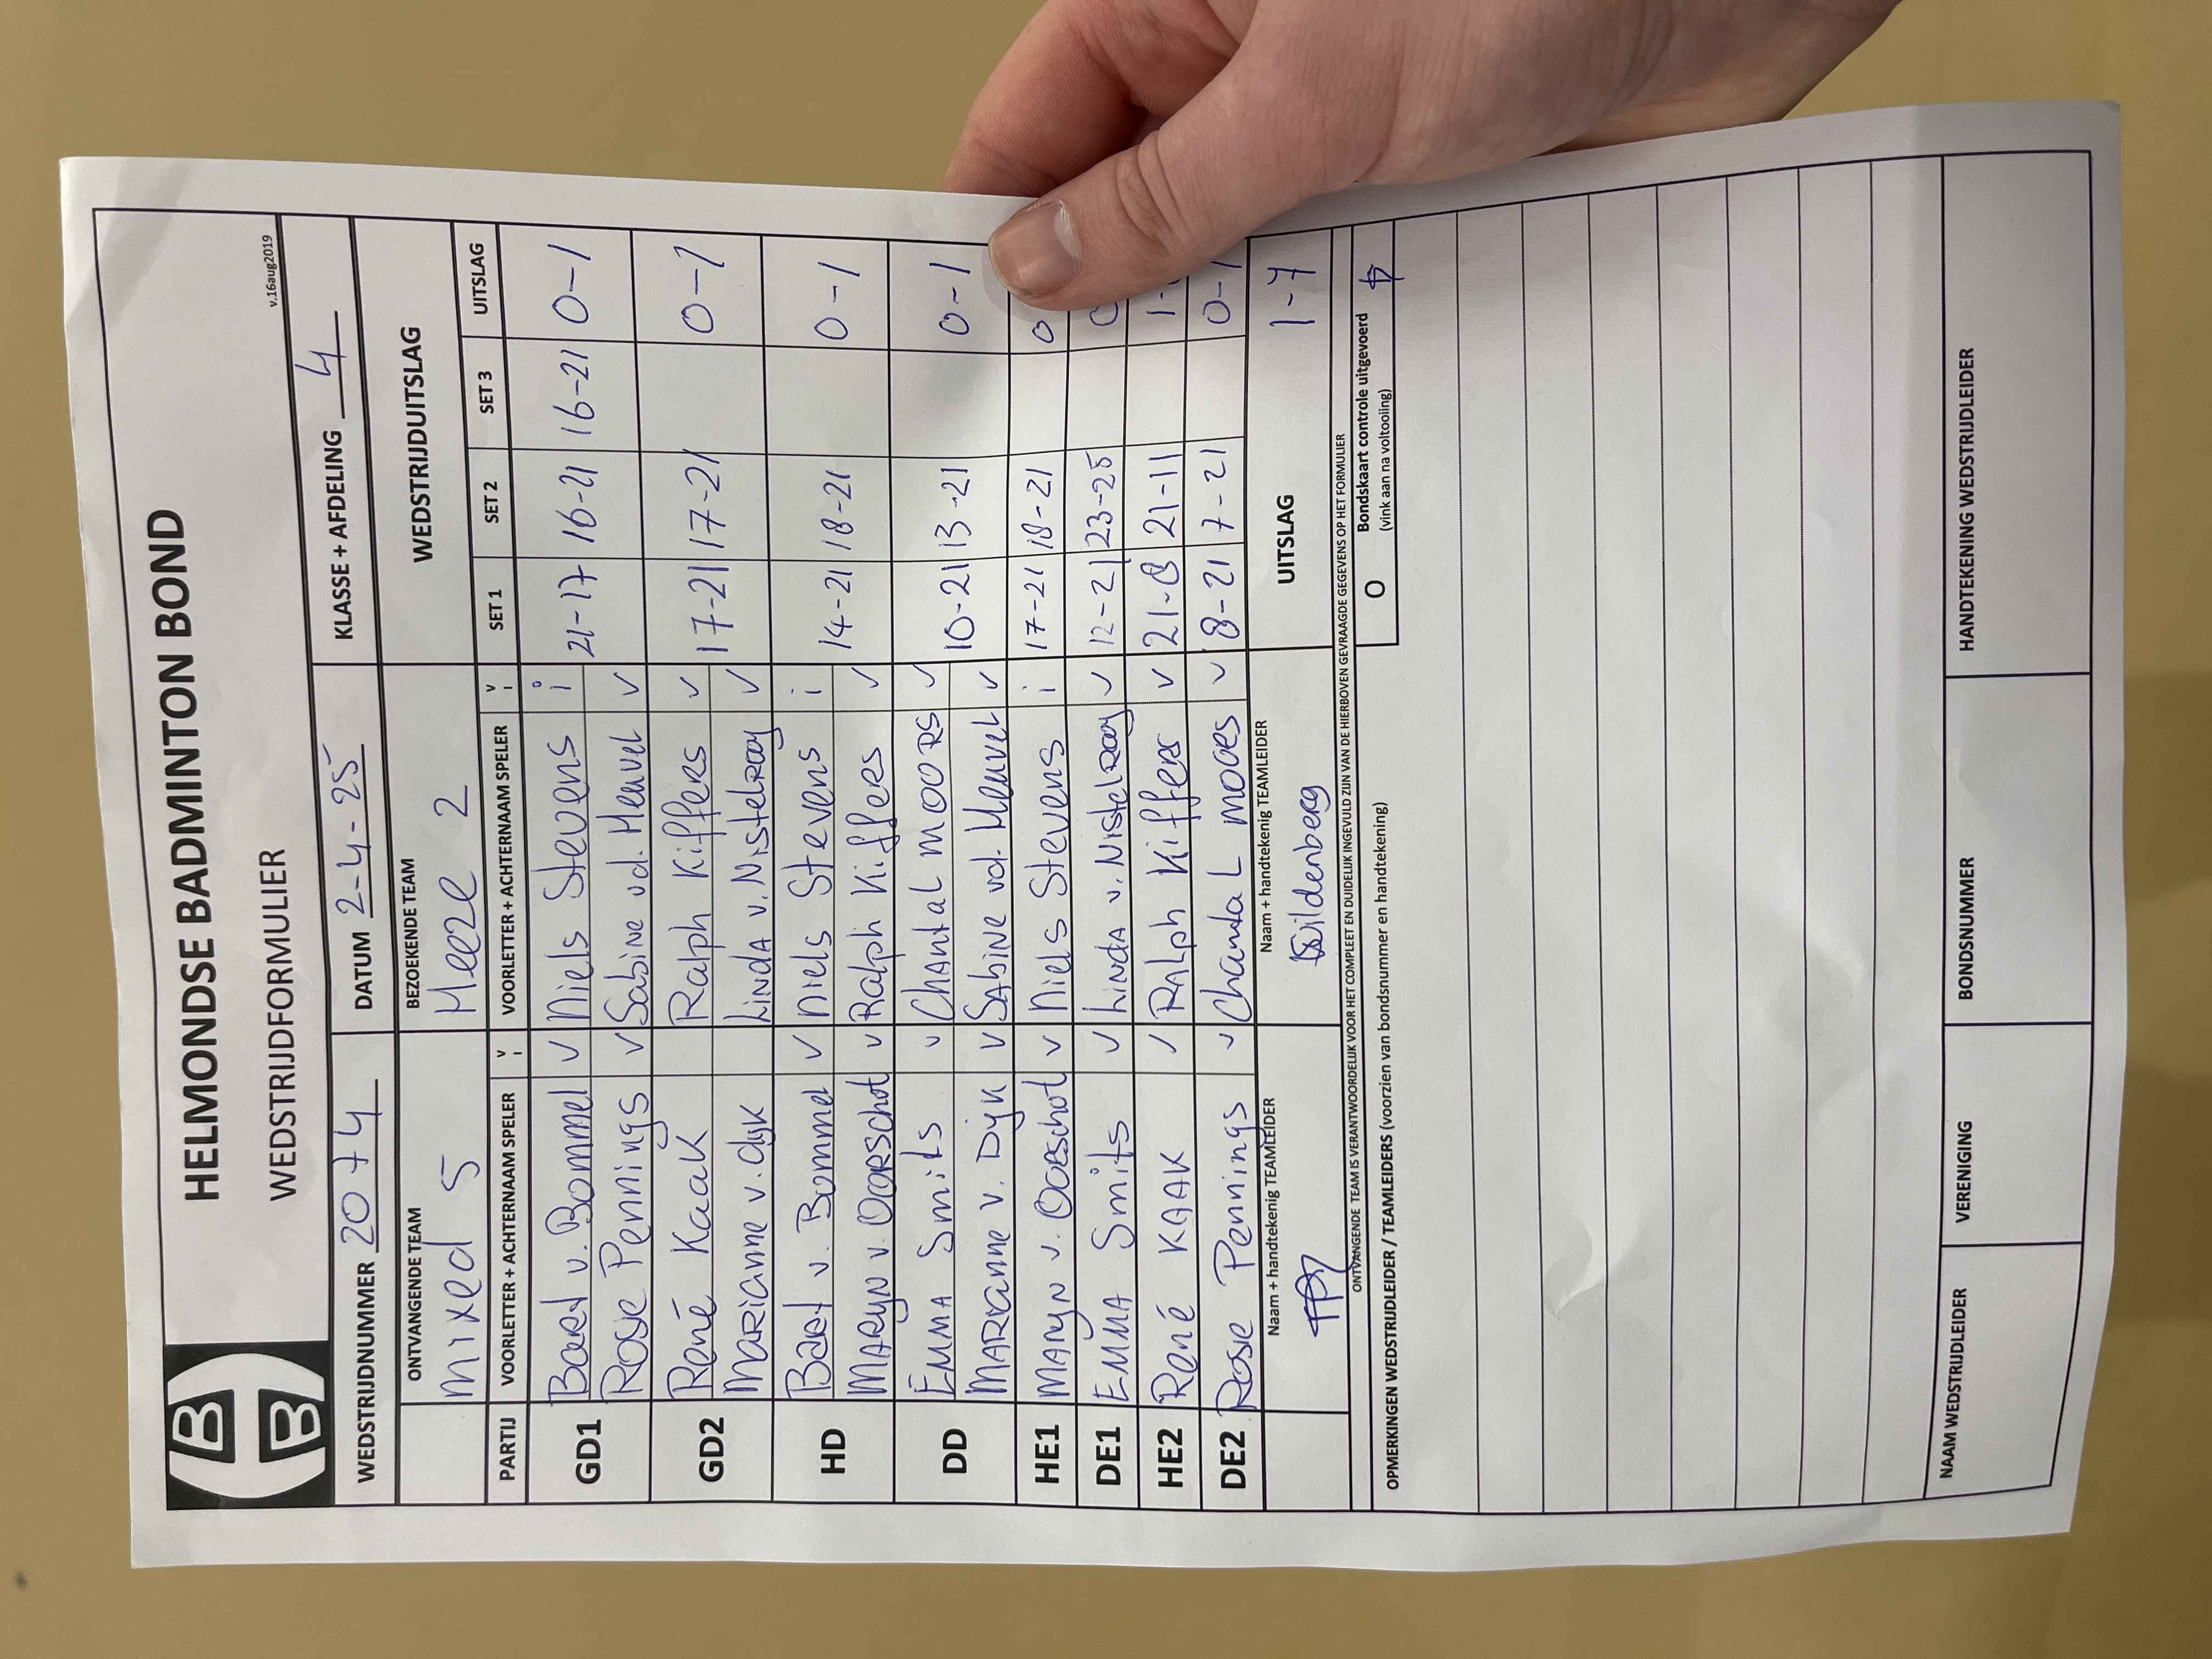 HELMONDSE BADMINTON BOND
WEDSTRIJDFORMULIER
v.16aug2019
WEDSTRIJDNUMMER 2074 DATUM 2-4-25 KLASSE + AFDELING 4
ONTVANGENDE TEAM BEZOEKENDE TEAM WEDSTRIJDUITSLAG
mixed 5 Heeze 2
PARTIJ VOORLETTER + ACHTERNAAM SPELER V I VOORLETTER + ACHTERNAAM SPELER V I SET 1 SET 2 SET 3 UITSLAG
GD1 Bart v. Bommel v Niels Stevens i 21-17 16-21 16-21 0-1
Rosie Pennings v Sabine vd. Heuvel v
GD2 René Kaak Ralph Kiffers v 17-21 17-21 0-1
Marianne v. dijk Linda v. Nistelrooy v
HD Bart v. Bommel v Niels Stevens i 14-21 18-21 0-1
Marijn v. Oorschot v Ralph Kiffers v
DD Emma Smits v Chantal Moors v 10-21 13-21 0-1
Marianne v. Dijk v Sabine vd. Heuvel v
HE1 Marijn v. Oorschot v Niels Stevens i 17-21 18-21 0
DE1 Emma Smits v Linda v. Nistelrooy v 12-21 23-25 0
HE2 René Kaak v Ralph Kiffers v 21-8 21-11 1-
DE2 Rosie Pennings v Chantal Moors v 8-21 7-21 0-1
Naam + handtekenig TEAMLEIDER Naam + handtekenig TEAMLEIDER UITSLAG 1-7
Wildenberg
ONTVANGENDE TEAM IS VERANTWOORDELIJK VOOR HET COMPLEET EN DUIDELIJK INGEVULD ZIJN VAN DE HIERBOVEN GEVRAAGDE GEGEVENS OP HET FORMULIER
OPMERKINGEN WEDSTRIJDLEIDER / TEAMLEIDERS (voorzien van bondsnummer en handtekening)
O Bondskaart controle uitgevoerd
(vink aan na voltooiing)
NAAM WEDSTRIJDLEIDER VERENIGING BONDSNUMMER HANDTEKENING WEDSTRIJDLEIDER